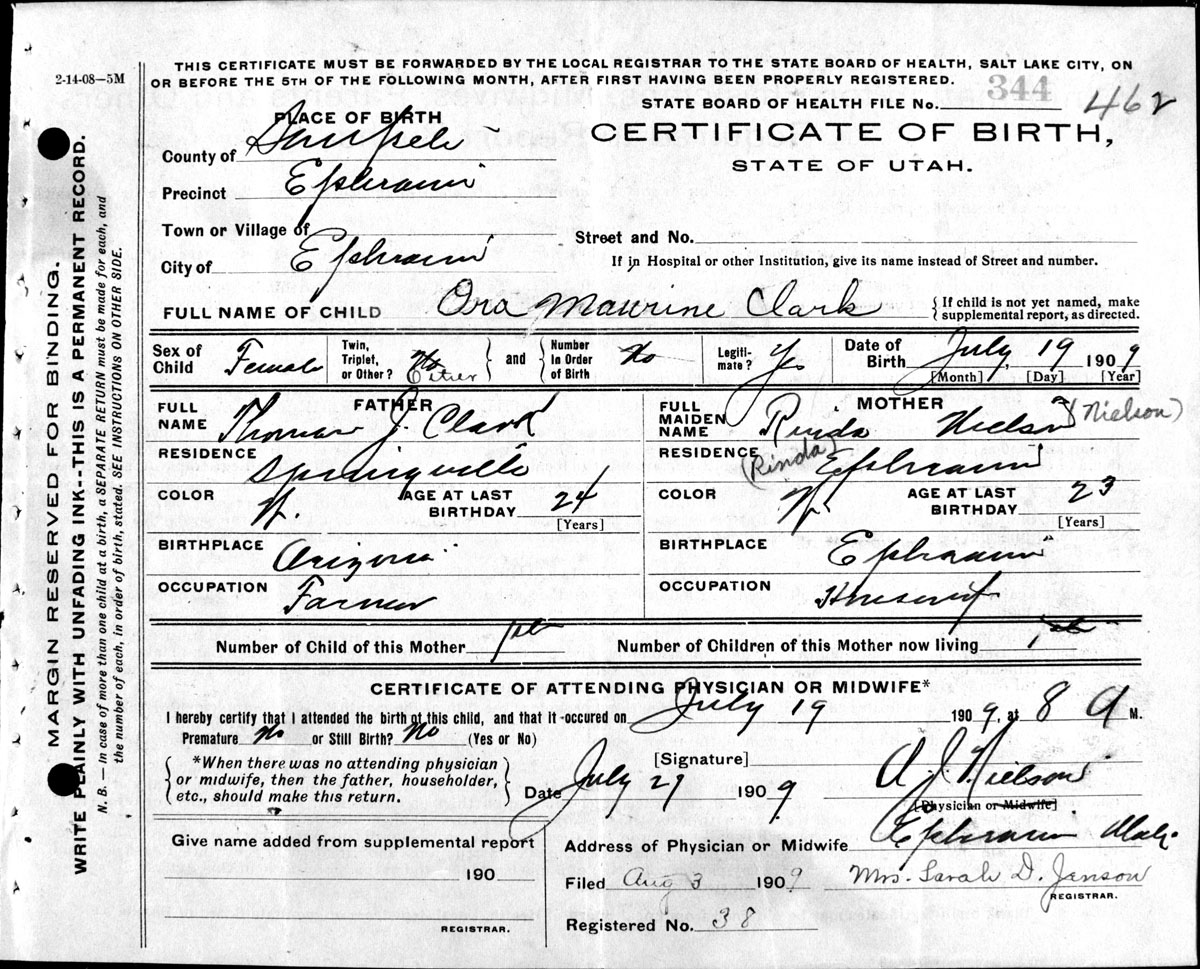 2-14-08—5M
THIS CERTIFICATE MUST BE FORWARDED BY THE LOCAL REGISTRAR TO THE STATE BOARD OF HEALTH, SALT LAKE CITY, ON
OR BEFORE THE 5TH OF THE FOLLOWING MONTH, AFTER FIRST HAVING BEEN PROPERLY REGISTERED.
STATE BOARD OF HEALTH FILE No. 344 462
PLACE OF BIRTH
CERTIFICATE OF BIRTH,
STATE OF UTAH.
County of Sanpete
Precinct Ephraim
Town or Village of
City of Ephraim
Street and No.
If in Hospital or other Institution, give its name instead of Street and number.
FULL NAME OF CHILD Ora Maurine Clark { If child is not yet named, make supplemental report, as directed.
Sex of Child Female Twin, Triplet, or Other? No and Number in Order of Birth No Legitimate? Yes Date of Birth July 19, 1909
[Month] [Day] [Year]
FATHER
FULL NAME Thomas J. Clark
RESIDENCE Springville
COLOR W. AGE AT LAST BIRTHDAY 24
[Years]
BIRTHPLACE Arizona
OCCUPATION Farmer
MOTHER
FULL MAIDEN NAME Rinda Nielson (Nielson)
RESIDENCE (Rinda) Ephraim
COLOR W. AGE AT LAST BIRTHDAY 23
[Years]
BIRTHPLACE Ephraim
OCCUPATION Housewife
Number of Child of this Mother 1st Number of Children of this Mother now living 1
CERTIFICATE OF ATTENDING PHYSICIAN OR MIDWIFE*
I hereby certify that I attended the birth of this child, and that it occured on July 19 1909, at 8 A M.
Premature No or Still Birth? No (Yes or No)
*When there was no attending physician or midwife, then the father, householder, etc., should make this return.
[Signature] A. J. Nielson
Date July 27 1909
[Physician or Midwife]
Address of Physician or Midwife Ephraim Utah
Give name added from supplemental report
190
REGISTRAR.
Filed Aug 3 1909 Mrs. Sarah D. Jenson
REGISTRAR.
Registered No. 38
MARGIN RESERVED FOR BINDING.
WRITE PLAINLY WITH UNFADING INK--THIS IS A PERMANENT RECORD.
N. B. — In case of more than one child at a birth, a SEPARATE RETURN must be made for each, and
the number of each, in order of birth, stated. SEE INSTRUCTIONS ON OTHER SIDE.